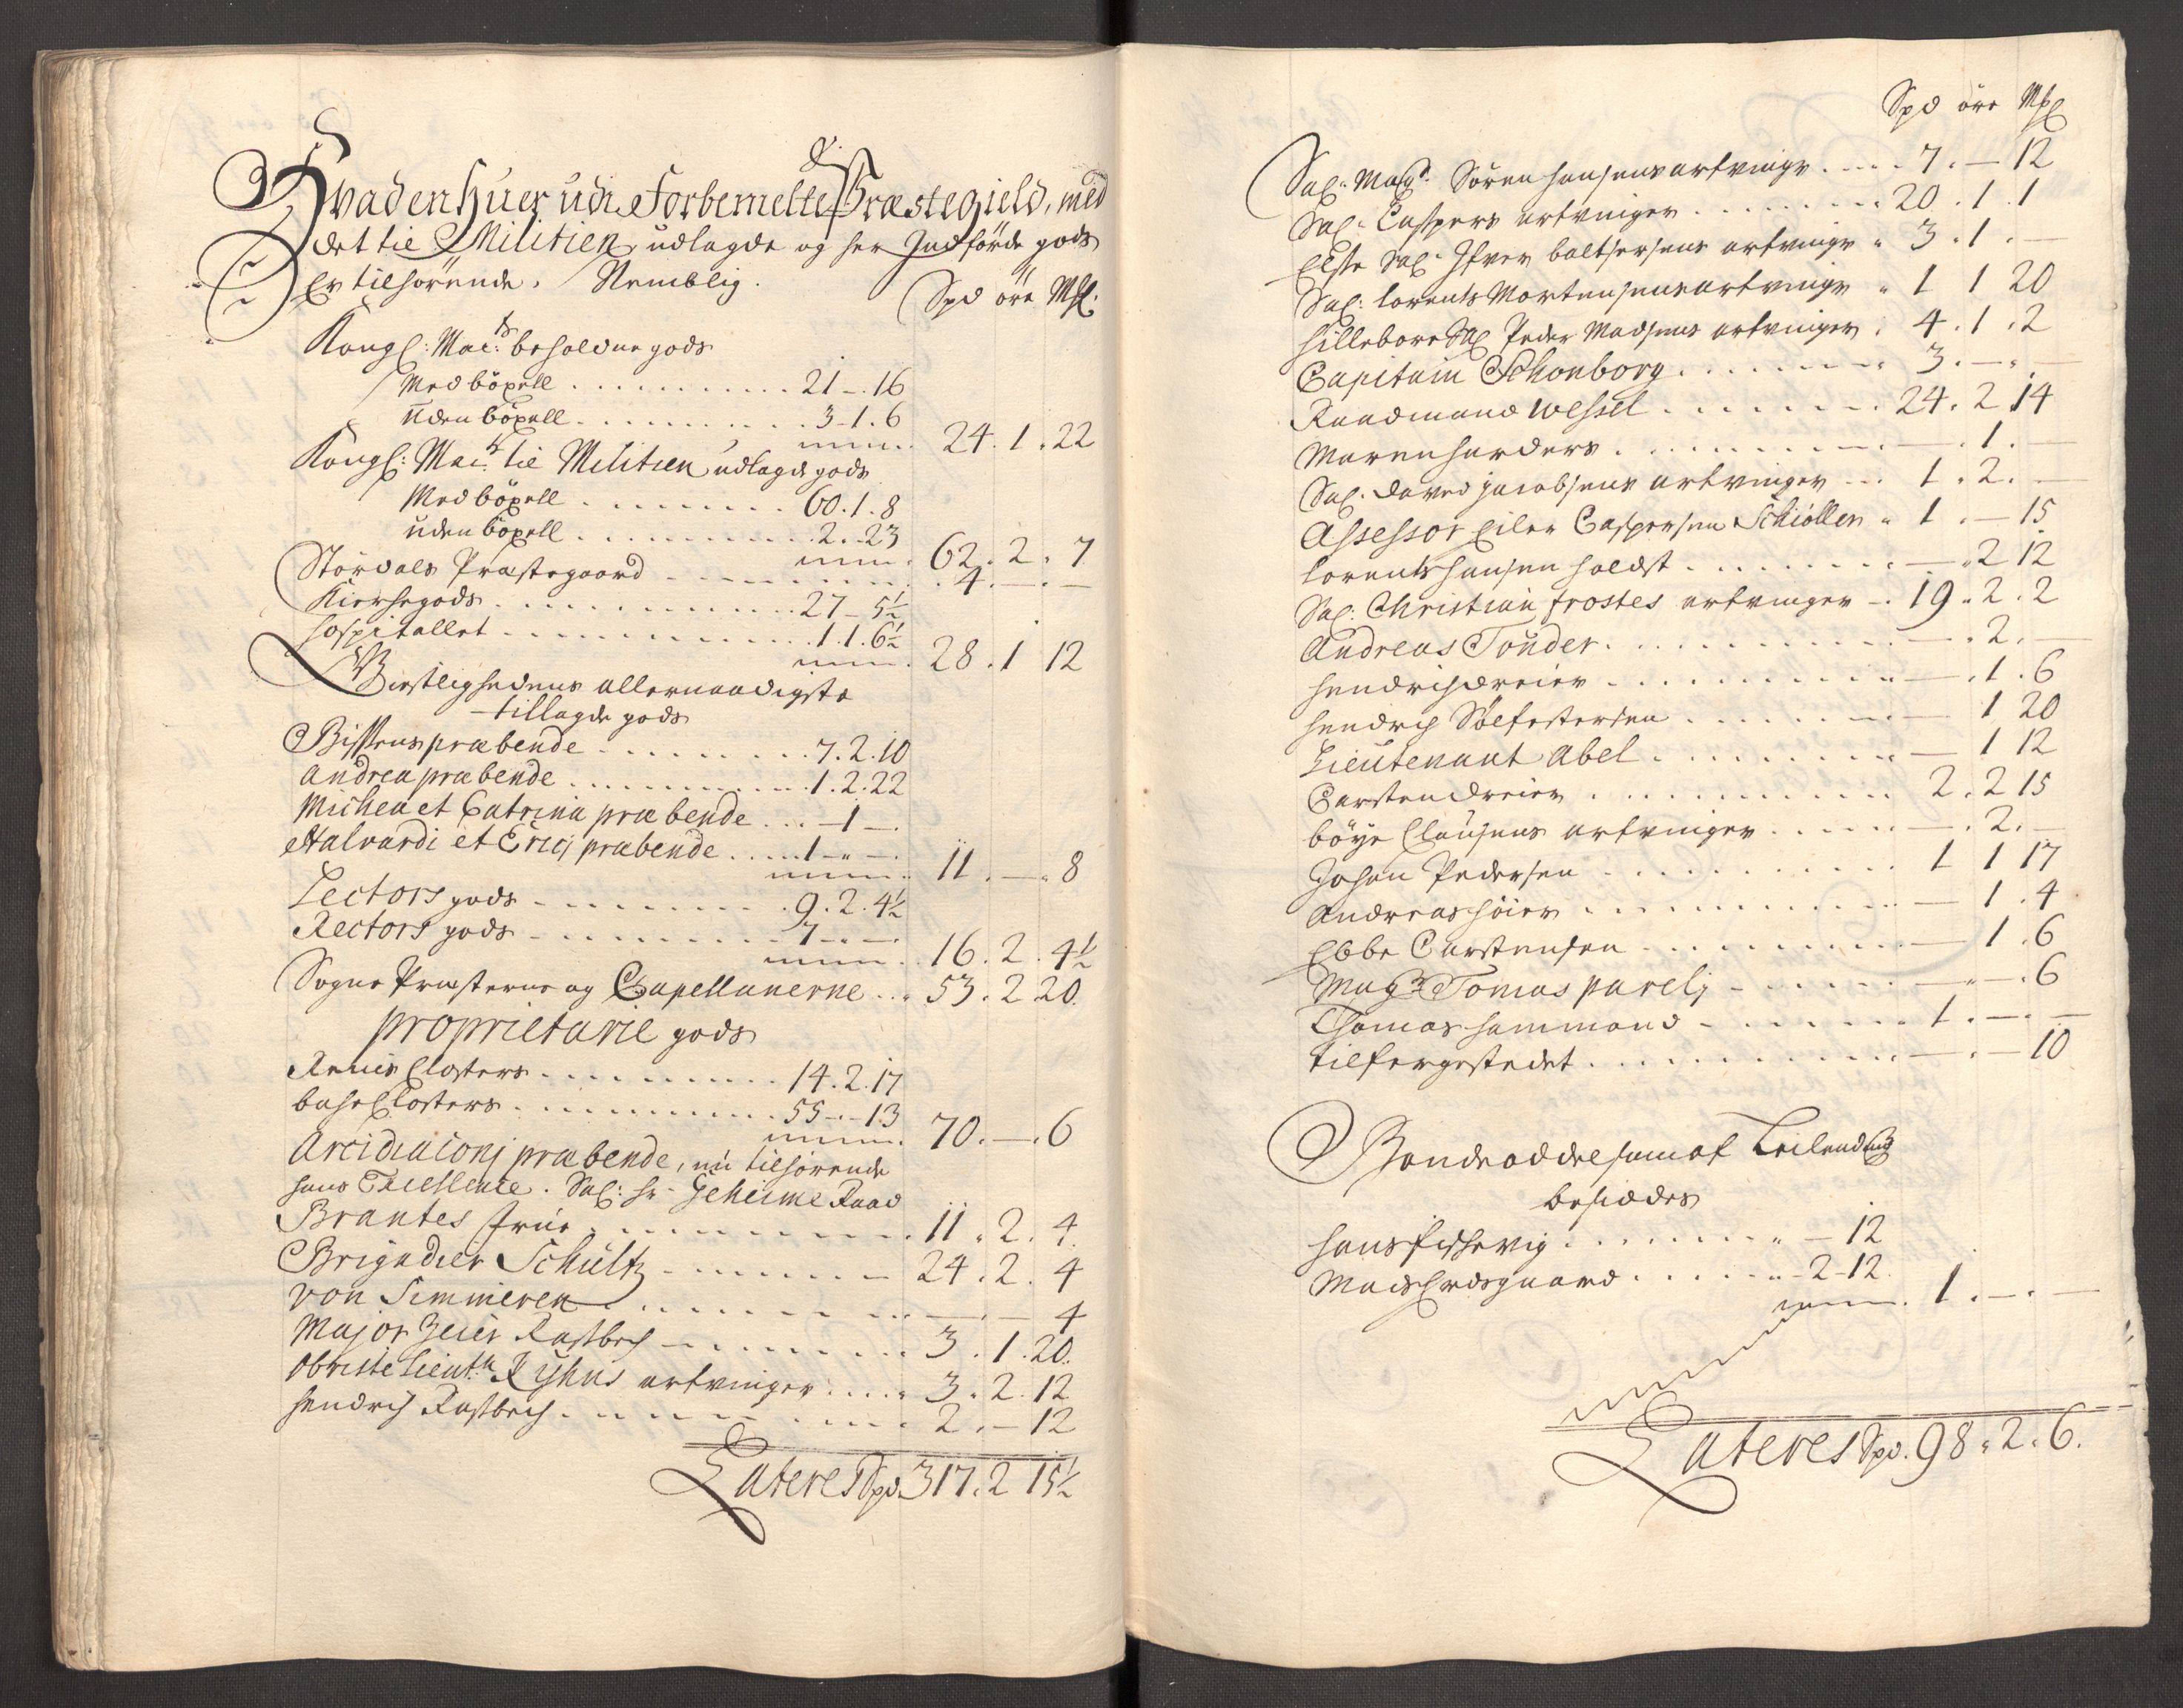 Hvad en huer udi Forbemelte Præstegield, med
det til Militien udlagde og her Indförde gods
Er tilhörende. Nemblig.
Spd öre Mkl:
Kongl: May:ts beholdne gods
Med böxell . . . 21 – . 16
Uden böxell . . . 3 – 1 . 6
24 . 1 . 22
Kongl: May:ts til Militien udlagde gods
Med böxell . . . 60 . 1 . 8
uden böxell . . . 2 . – 23
62 . 2 . 7
Stördals Præstegaard . . . 4 . – . –
Kierchegods . . . 27 – 5½
Hospitallet . . . 1 . 1 . 6½
28 . 1 12
Geistlighedens allernaadigste
tillagde gods
Bispens præbende . . . 7 . 2 . 10
Andrea præbende . . . 1 . 2 . 22
Michea et Catrina præbende . . . – 1 – .
Halvardi et Erici præbende . . . 1 – . –
11 . – . 8
Lectors gods . . . 9 . 2 . 4½
Rectors gods . . . 7 – . –
16 . 2 . 4½
Sogne Præsterne og Capellanerne . . . 53 . 2 20.
proprietarie gods
Reins Closters . . . 14 . 2 . 17
Bache Closters . . . 55 – . – 13
70 . – . 6
Arcidiaconj præbende, nu tilhörende
hans Excellence . Sal: hr. Geheime Raad
Brantes frue . . . 11 . 2 . 4
Brigadier Schultz . . . 24 . 2 . 4
von Simmeren . . . – . – 4
Major Rastbech . . . 3 . 1 . 20.
Obriste Lieut:n Ryhus arfvinger . . . 3 . 2 . 12
Hendrich Rastbech . . . 2 . – 12
Lateres Spd. 317 . 2 15½
Spd öre Mkl
Sal: Mag:r Sören Hansens arfvinge . . . 7 . – 12
Sal: Caspers arfvinger . . . 20 . 1 . 1
Else Sal: Ifver Baltzersens arfvinge . 3 . 1 . –
Sal: Lorents Mortensens arfvinge . 1 1 20
Hillebore Sal: Peder Madsens arfvinger . 4 . 1 . 2
Capitain Schonborg . . . 3 . – . –
Raadmand Wessel . . . 24 . 2 14
Maren Harders . . . – . 1 . –
Sal: David Jacobsens arfvinger . . . 1 . 2 . –
Assessor Eiler Caspersen Schiöller . 1 . – 15
Lorents Hansen Holdst . . . – . 2 12
Sal: Christian Frostes arfvinger – . 19 . 2 . 2
Andreas Tonder . . . – . 2 . –
Hendrich Dreier . . . – . 1 . 6
Hendrich Sölfestersen . . . – 1 20
Lieutenant Abel . . . – 1 12
Carsten Dreier . . . 2 . 2 15
Böye Clausens arfvinger . . . – . 2 . –
Johan Pedersen . . . 1 1 17
Andreas Höier . . . – 1 . 4
Ebbe Carstensen . . . – 1 . 6
Mag:r Tomas parelj . . . – . – . 6
Thomas Hammond . . . 1 . – . –
tilfergestedet . . . – . – 10
Bonde oddel som af Leilending
besiddes
Hans . . . – 12
Mads . . . – 2 – 12.
1 . – . –
Lateres Spd. 98 . 2 . 6.